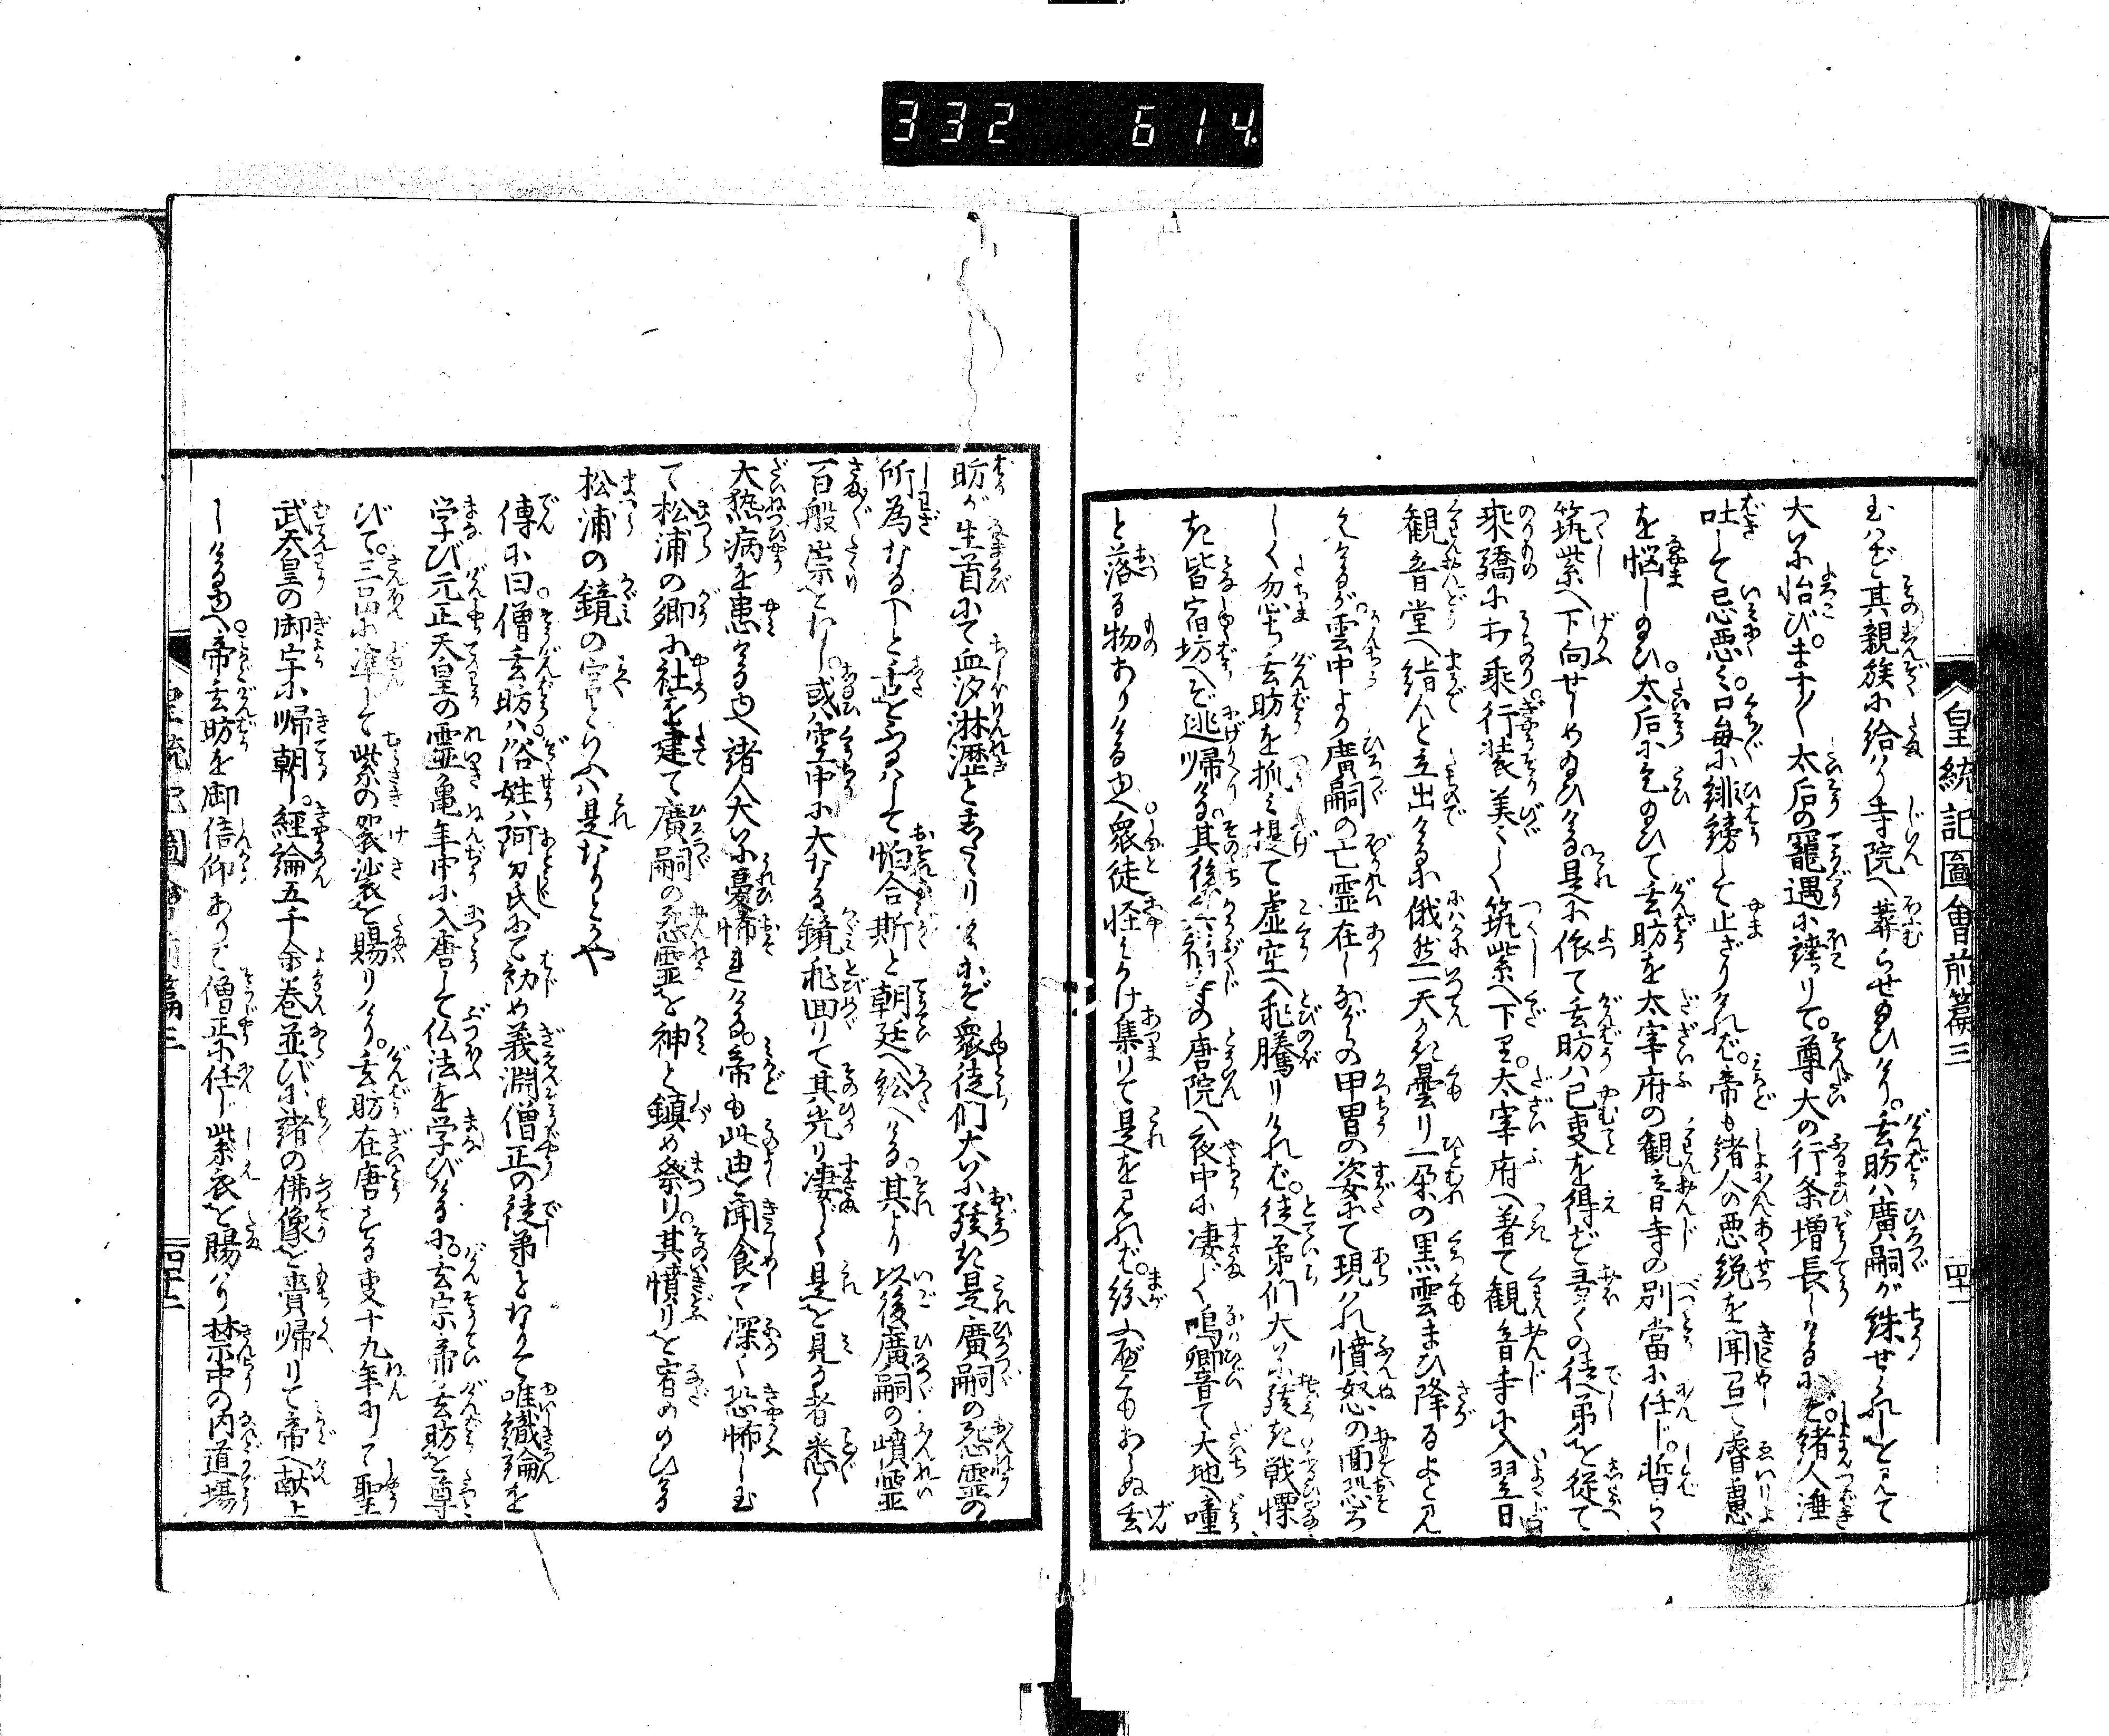 332 614
皇統記圖會前篇三
四十一
玉はず其親族に給はり寺院へ葬らせ給ひけり。玄昉は廣嗣が誅せられしと見て
大いに怡びます〳〵太后の寵遇に誇りて。尊大の行条増長しけるにぞ。緒人唾
吐して忌悪み。口毎に誹謗して止ざりければ。帝も緒人の悪説を聞召て睿慮
を悩し給ひ。太后に乞給ひて玄昉を太宰府の観音寺の別當に任じ。暫らく
筑紫へ下向せしめ給ひける。是に依て玄昉は已事を得ず多くの徒弟を従て
乗轎に打乗行装美々しく筑紫へ下り。太宰府へ着て観音寺に入翌日
観音堂へ詣んと立出けるに俄然一天かき曇り一朶の黒雲まひ降るよと見
えけるが。雲中より廣嗣の亡霊在しながらの甲冑の姿にて現はれ憤怒の面恐ろ
しく忽ち玄昉を抓み提て虚空へ飛騰りければ。徒弟们大いに駭き戦慄
き皆宿坊へぞ逃帰ける。其後興福寺の唐院へ夜中に凄じく鳴響て大地へ瞳
と落る物ありける由へ。衆徒怪しみかけ集りて是を見れば。紛ふべくもあらぬ玄
昉が生首にて血汐淋漓と滴たりければ衆徒们大いに駭き是廣嗣の怨霊の
所為なるべしと舌をふるはして怕合斯と朝廷へ訟へける。其より以後廣嗣の憤霊
百般祟をなし。或は空中に大なる鏡飛回りて其光り凄じく是を見る者悉く
大熱病を患ける由へ諸人大いに憂怖れける。帝も此由を聞食て深く恐怖し玉
て松浦の郷に社を建て廣嗣の怨霊を神と鎮め祭り。其憤りを宥め給ひける
松浦の鏡の宮といふは是なりとかや
傳に曰僧玄昉は。俗姓は阿刀氏にて初め義淵僧正の徒弟となりて唯識論を
学び元正天皇の霊亀年中に入唐して仏法を学びけるに。玄宗帝玄昉を尊
びて。三品に准じて紫の袈裟を賜りけり。玄昉在唐する事十九年にして聖
武天皇の御宇に帰朝し。經論五千余巻並びに諸の佛像を賷帰りて帝へ献上
しける由へ。帝玄昉を御信仰ありて僧正に任じ紫衣を賜はり禁中の内道場
皇統記圖會前篇三
四十二